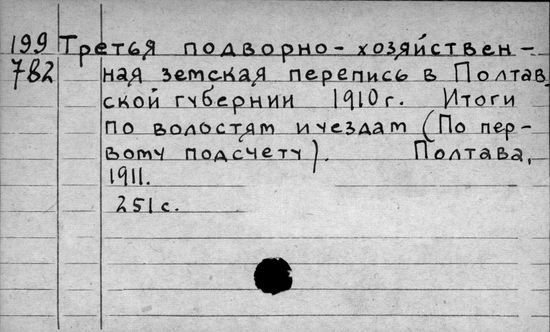 199 Третья подворно-хозяйствен-
782 ная земская перепись в Полтав
ской губернии 1910г. Итоги
по волостям и уездам (По пер-
вому подсчету). Полтава,
1911.
251с.